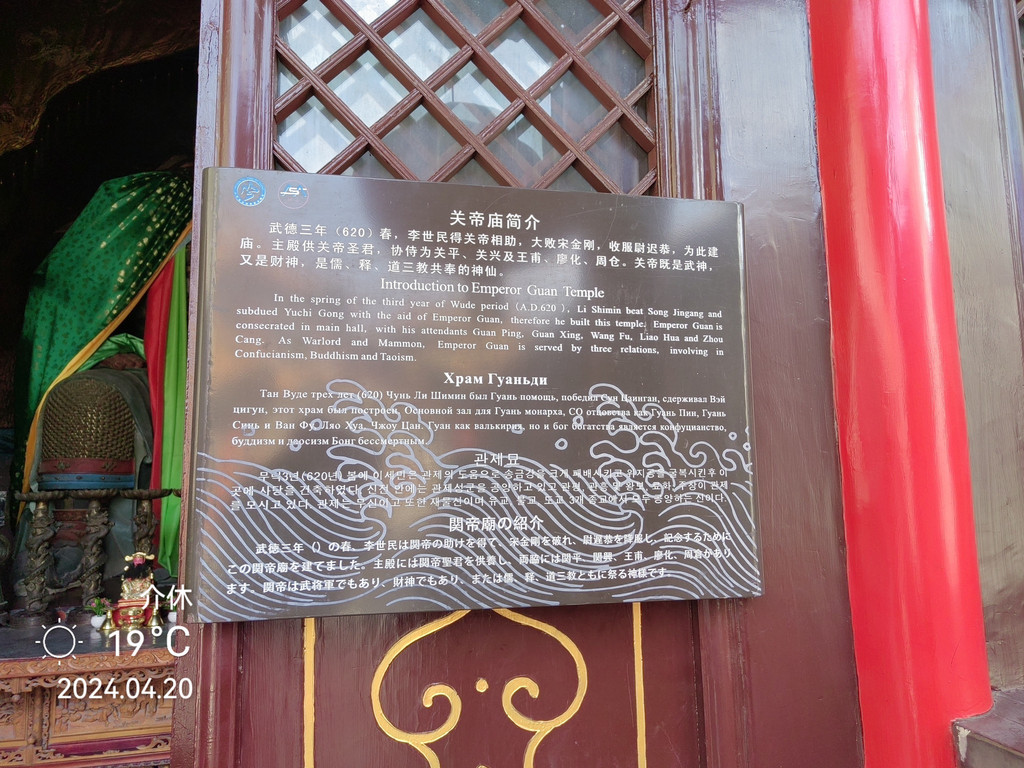 关帝庙简介
武德三年（620）春，李世民得关帝相助，大败宋金刚，收服尉迟恭，为此建
庙。主殿供关帝圣君，协侍为关平、关兴及王甫、廖化、周仓。关帝既是武神，
又是财神，是儒、释、道三教共奉的神仙。
Introduction to Emperor Guan Temple
In the spring of the third year of Wude period (A.D.620 ), Li Shimin beat Song Jingang and
subdued Yuchi Gong with the aid of Emperor Guan, therefore he built this temple. Emperor Guan is
consecrated in main hall, with his attendants Guan Ping, Guan Xing, Wang Fu, Liao Hua and Zhou
Cang. As Warlord and Mammon, Emperor Guan is served by three relations, involving in
Confucianism, Buddhism and Taoism.
Храм Гуаньди
Тан Вуде трех лет (620) Чунь Ли Шимин был Гуань помощь, победил Сун Цзинган, сдерживал Вэй
цигун, этот храм был построен. Основной зал для Гуань монарха, СО отцовства как Гуань Пин, Гуань
Синь и Ван Фу, Ляо Хуа, Чжоу Цан. Гуан как валькирия, но и бог богатства является конфуцианство,
буддизм и даосизм Бонг бессмертным
관제묘
무덕3년(620년) 봄에 이세민은 관제의 도움으로 송금강을 크게 패배시키고 위지공을 굴복시킨후 이
곳에 사당을 건축하였다. 신전 안에는 관제성군을 공양하고 있고 관평, 관흥 및 왕보, 료화, 주창이 관제
를 모시고 있다. 관제는 무신이고 또한 재물신이며 유교, 불교, 도교 3개 종교에서 모두 공양하는 신이다.
関帝廟の紹介
武徳三年（）の春、李世民は関帝の助けを得て、宋金剛を破れ、尉遅恭を降服し、記念するために
この関帝廟を建てました。主殿には関帝聖君を供養し、両脇には関平、関興、王甫、廖化、周倉があり
ます。関帝は武将軍でもあり、財神でもあり、または儒、釋、道三教ともに祭る神様です。
介休
19°C
2024.04.20